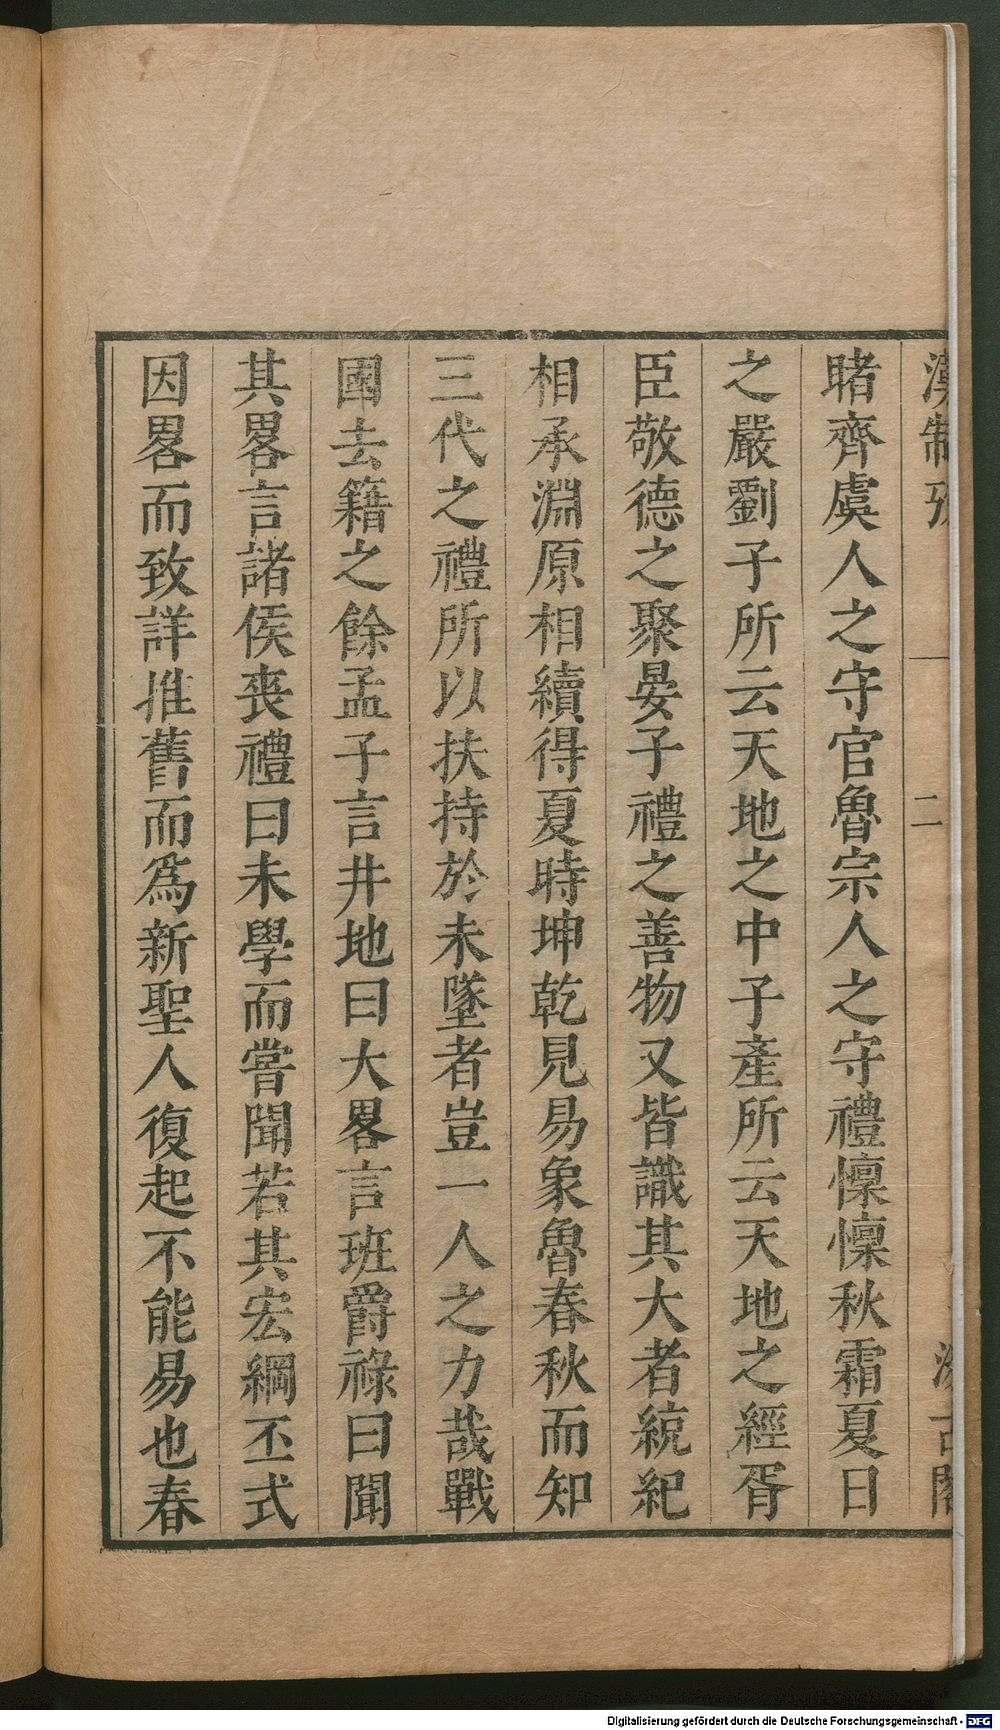 漢制攷
二
汲古閣
睹齊虞人之守官魯宗人之守禮懍懍秋霜夏日
之嚴劉子所云天地之中子產所云天地之經胥
臣敬德之聚晏子禮之善物又皆識其大者統紀
相承淵原相續得夏時坤乾見易象魯春秋而知
三代之禮所以扶持於未墜者豈一人之力哉戰
國去籍之餘孟子言井地曰大畧言班爵祿曰聞
其畧言諸侯喪禮曰未學而嘗聞若其宏綱丕式
因畧而致詳推舊而為新聖人復起不能易也春
Digitalisierung gefördert durch die Deutsche Forschungsgemeinschaft - DFG